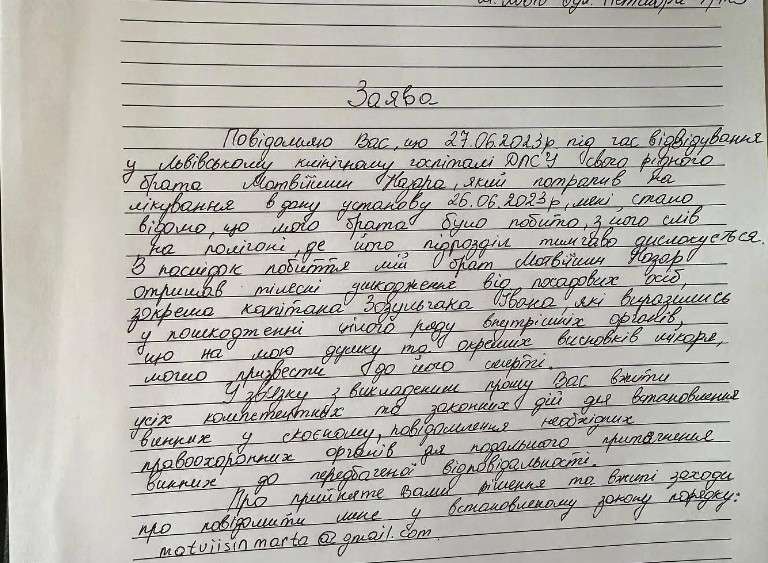 Заява
Повідомляю Вас, що 27.06.2023р під час відвідування
у Львівському клінічному госпіталі ДПСУ свого рідного
брата Матвіїшин Назара, який потрапив на
лікування в дану установу 26.06.2023р, мені, стало
відомо, що мого брата було побито, з його слів
на полігоні, де його підрозділ тимчаво дислокується.
В послідок побиття мій брат Матвіїшин Назар
отримав тілесні ушкодження від посадових осіб,
зокрема капітана Зозульчака Івана, які виразились
у пошкодженні цілого ряду внутрішніх органів,
що на мою думку та окремих висновків лікаря,
могло призвести до його смерті.
У зв'язку з викладеним прошу Вас вжити
усіх компетентних та законних дій для встановлення
винних у скоєному, повідомлення необхідних
правоохоронних органів для подальшого притягнення
винних до передбаченої відповідальності.
Про прийняте Вами рішення та вжиті заходи
про повідомити мене у встановленому закону порядку:
matviisinmarta@gmail.com